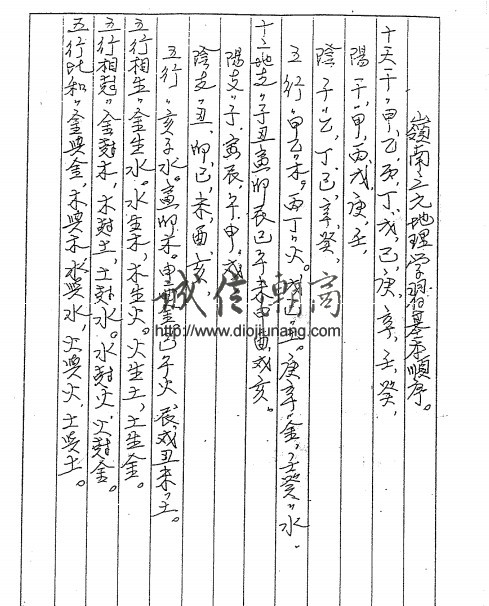 嶺南三元地理学習基本順序。
十天干"甲、乙、丙、丁、戊、己、庚、辛、壬、癸、
陽干"甲、丙、戊、庚、壬、
陰干"乙、丁、己、辛、癸、
五行"甲乙"木。丙丁"火。戊己"土。庚辛"金、壬癸"水.
十二地支"子丑寅卯辰巳午未申酉戌亥。
陽支"子、寅、辰、午、申、戌
陰支"丑、卯、巳、未、酉、亥、
五行"亥子水。寅卯木。申酉金。巳午火、辰、戌丑未"土。
五行相生"金生水。水生木、木生火。火生土、土生金。
五行相尅"金尅木、木尅土、土尅水。水尅火、火尅金。
五行比和"金與金、木與木、水與水、火與火、土與土。
诚信轩高
http://www.diojiunang.com